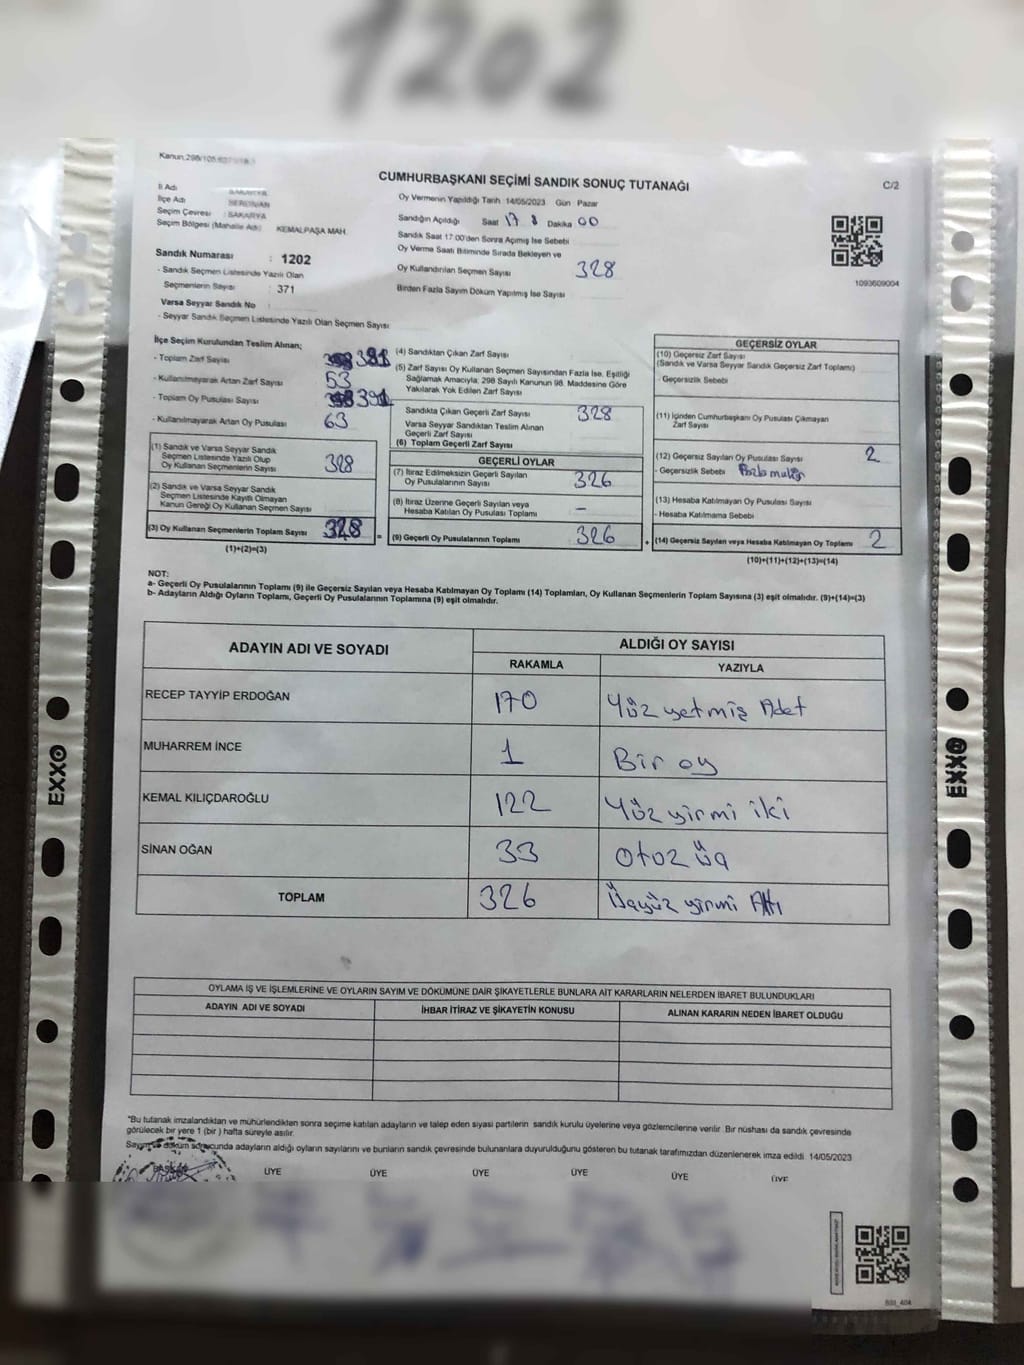 1202
CUMHURBAŞKANI SEÇİMİ SANDIK SONUÇ TUTANAĞI
C/2
İl Adı
İlçe Adı
Seçim Çevresi : SAKARYA
Seçim Bölgesi (Mahalle Adı) KEMALPAŞA MAH.
Sandık Numarası : 1202
- Sandık Seçmen Listesinde Yazılı Olan
Seçmenlerin Sayısı : 371
Varsa Seyyar Sandık No
- Seyyar Sandık Seçmen Listesinde Yazılı Olan Seçmen Sayısı
Oy Vermenin Yapıldığı Tarih 14/05/2023 Gün Pazar
Sandığın Açıldığı Saat 17 Dakika 00
Sandık Saat 17:00'den Sonra Açılmış İse Sebebi
Oy Verme Saati Bitiminde Sırada Bekleyen ve
Oy Kullandırılan Seçmen Sayısı 328
Birden Fazla Sayım Döküm Yapılmış İse Sayısı
1093609004
İlçe Seçim Kurulundan Teslim Alınan;
- Toplam Zarf Sayısı
- Kullanılmayarak Artan Zarf Sayısı 53
- Toplam Oy Pusulası Sayısı
- Kullanılmayarak Artan Oy Pusulası 63
(1) Sandık ve Varsa Seyyar Sandık
Seçmen Listesinde Yazılı Olup
Oy Kullanan Seçmenlerin Sayısı 328
(2) Sandık ve Varsa Seyyar Sandık
Seçmen Listesinde Kayıtlı Olmayan
Kanun Gereği Oy Kullanan Seçmen Sayısı
(3) Oy Kullanan Seçmenlerin Toplam Sayısı 328 =
(1)+(2)=(3)
(4) Sandıktan Çıkan Zarf Sayısı
(5) Zarf Sayısı Oy Kullanan Seçmen Sayısından Fazla İse, Eşitliği
Sağlamak Amacıyla, 298 Sayılı Kanunun 98. Maddesine Göre
Yakılarak Yok Edilen Zarf Sayısı
Sandıkta Çıkan Geçerli Zarf Sayısı 328
Varsa Seyyar Sandıktan Teslim Alınan
Geçerli Zarf Sayısı
(6) Toplam Geçerli Zarf Sayısı
GEÇERLİ OYLAR
(7) İtiraz Edilmeksizin Geçerli Sayılan
Oy Pusulalarının Sayısı 326
(8) İtiraz Üzerine Geçerli Sayılan veya
Hesaba Katılan Oy Pusulası Toplamı -
(9) Geçerli Oy Pusulalarının Toplamı 326 +
GEÇERSİZ OYLAR
(10) Geçersiz Zarf Sayısı
(Sandık ve Varsa Seyyar Sandık Geçersiz Zarf Toplamı)
- Geçersizlik Sebebi
(11) İçinden Cumhurbaşkanı Oy Pusulası Çıkmayan
Zarf Sayısı
(12) Geçersiz Sayılan Oy Pusulası Sayısı 2
- Geçersizlik Sebebi
(13) Hesaba Katılmayan Oy Pusulası Sayısı
- Hesaba Katılmama Sebebi
(14) Geçersiz Sayılan veya Hesaba Katılmayan Oy Toplamı 2
(10)+(11)+(12)+(13)=(14)
NOT:
a- Geçerli Oy Pusulalarının Toplamı (9) ile Geçersiz Sayılan veya Hesaba Katılmayan Oy Toplamı (14) Toplamları, Oy Kullanan Seçmenlerin Toplam Sayısına (3) eşit olmalıdır. (9)+(14)=(3)
b- Adayların Aldığı Oyların Toplamı, Geçerli Oy Pusulalarının Toplamına (9) eşit olmalıdır.
ADAYIN ADI VE SOYADI ALDIĞI OY SAYISI
RAKAMLA YAZIYLA
RECEP TAYYİP ERDOĞAN 170 Yüz yetmiş Adet
MUHARREM İNCE 1 Bir oy
KEMAL KILIÇDAROĞLU 122 Yüz yirmi iki
SİNAN OĞAN 33 Otoz üç
TOPLAM 326 Üçyüz yirmi Altı
OYLAMA İŞ VE İŞLEMLERİNE VE OYLARIN SAYIM VE DÖKÜMÜNE DAİR ŞİKAYETLERLE BUNLARA AİT KARARLARIN NELERDEN İBARET BULUNDUKLARI
ADAYIN ADI VE SOYADI İHBAR İTİRAZ VE ŞİKAYETİN KONUSU ALINAN KARARIN NEDEN İBARET OLDUĞU
*Bu tutanak imzalandıktan ve mühürlendikten sonra seçime katılan adayların ve talep eden siyasi partilerin sandık kurulu üyelerine veya gözlemcilerine verilir. Bir nüshası da sandık çevresinde
görülecek bir yere 1 (bir) hafta süreyle asılır.
Sayım ve döküm sonucunda adayların aldığı oyların sayılarını ve bunların sandık çevresinde bulunanlara duyurulduğunu gösteren bu tutanak tarafımızdan düzenlenerek imza edildi. 14/05/2023
BAŞKAN ÜYE ÜYE ÜYE ÜYE ÜYE ÜYE
EXXO
EXXO